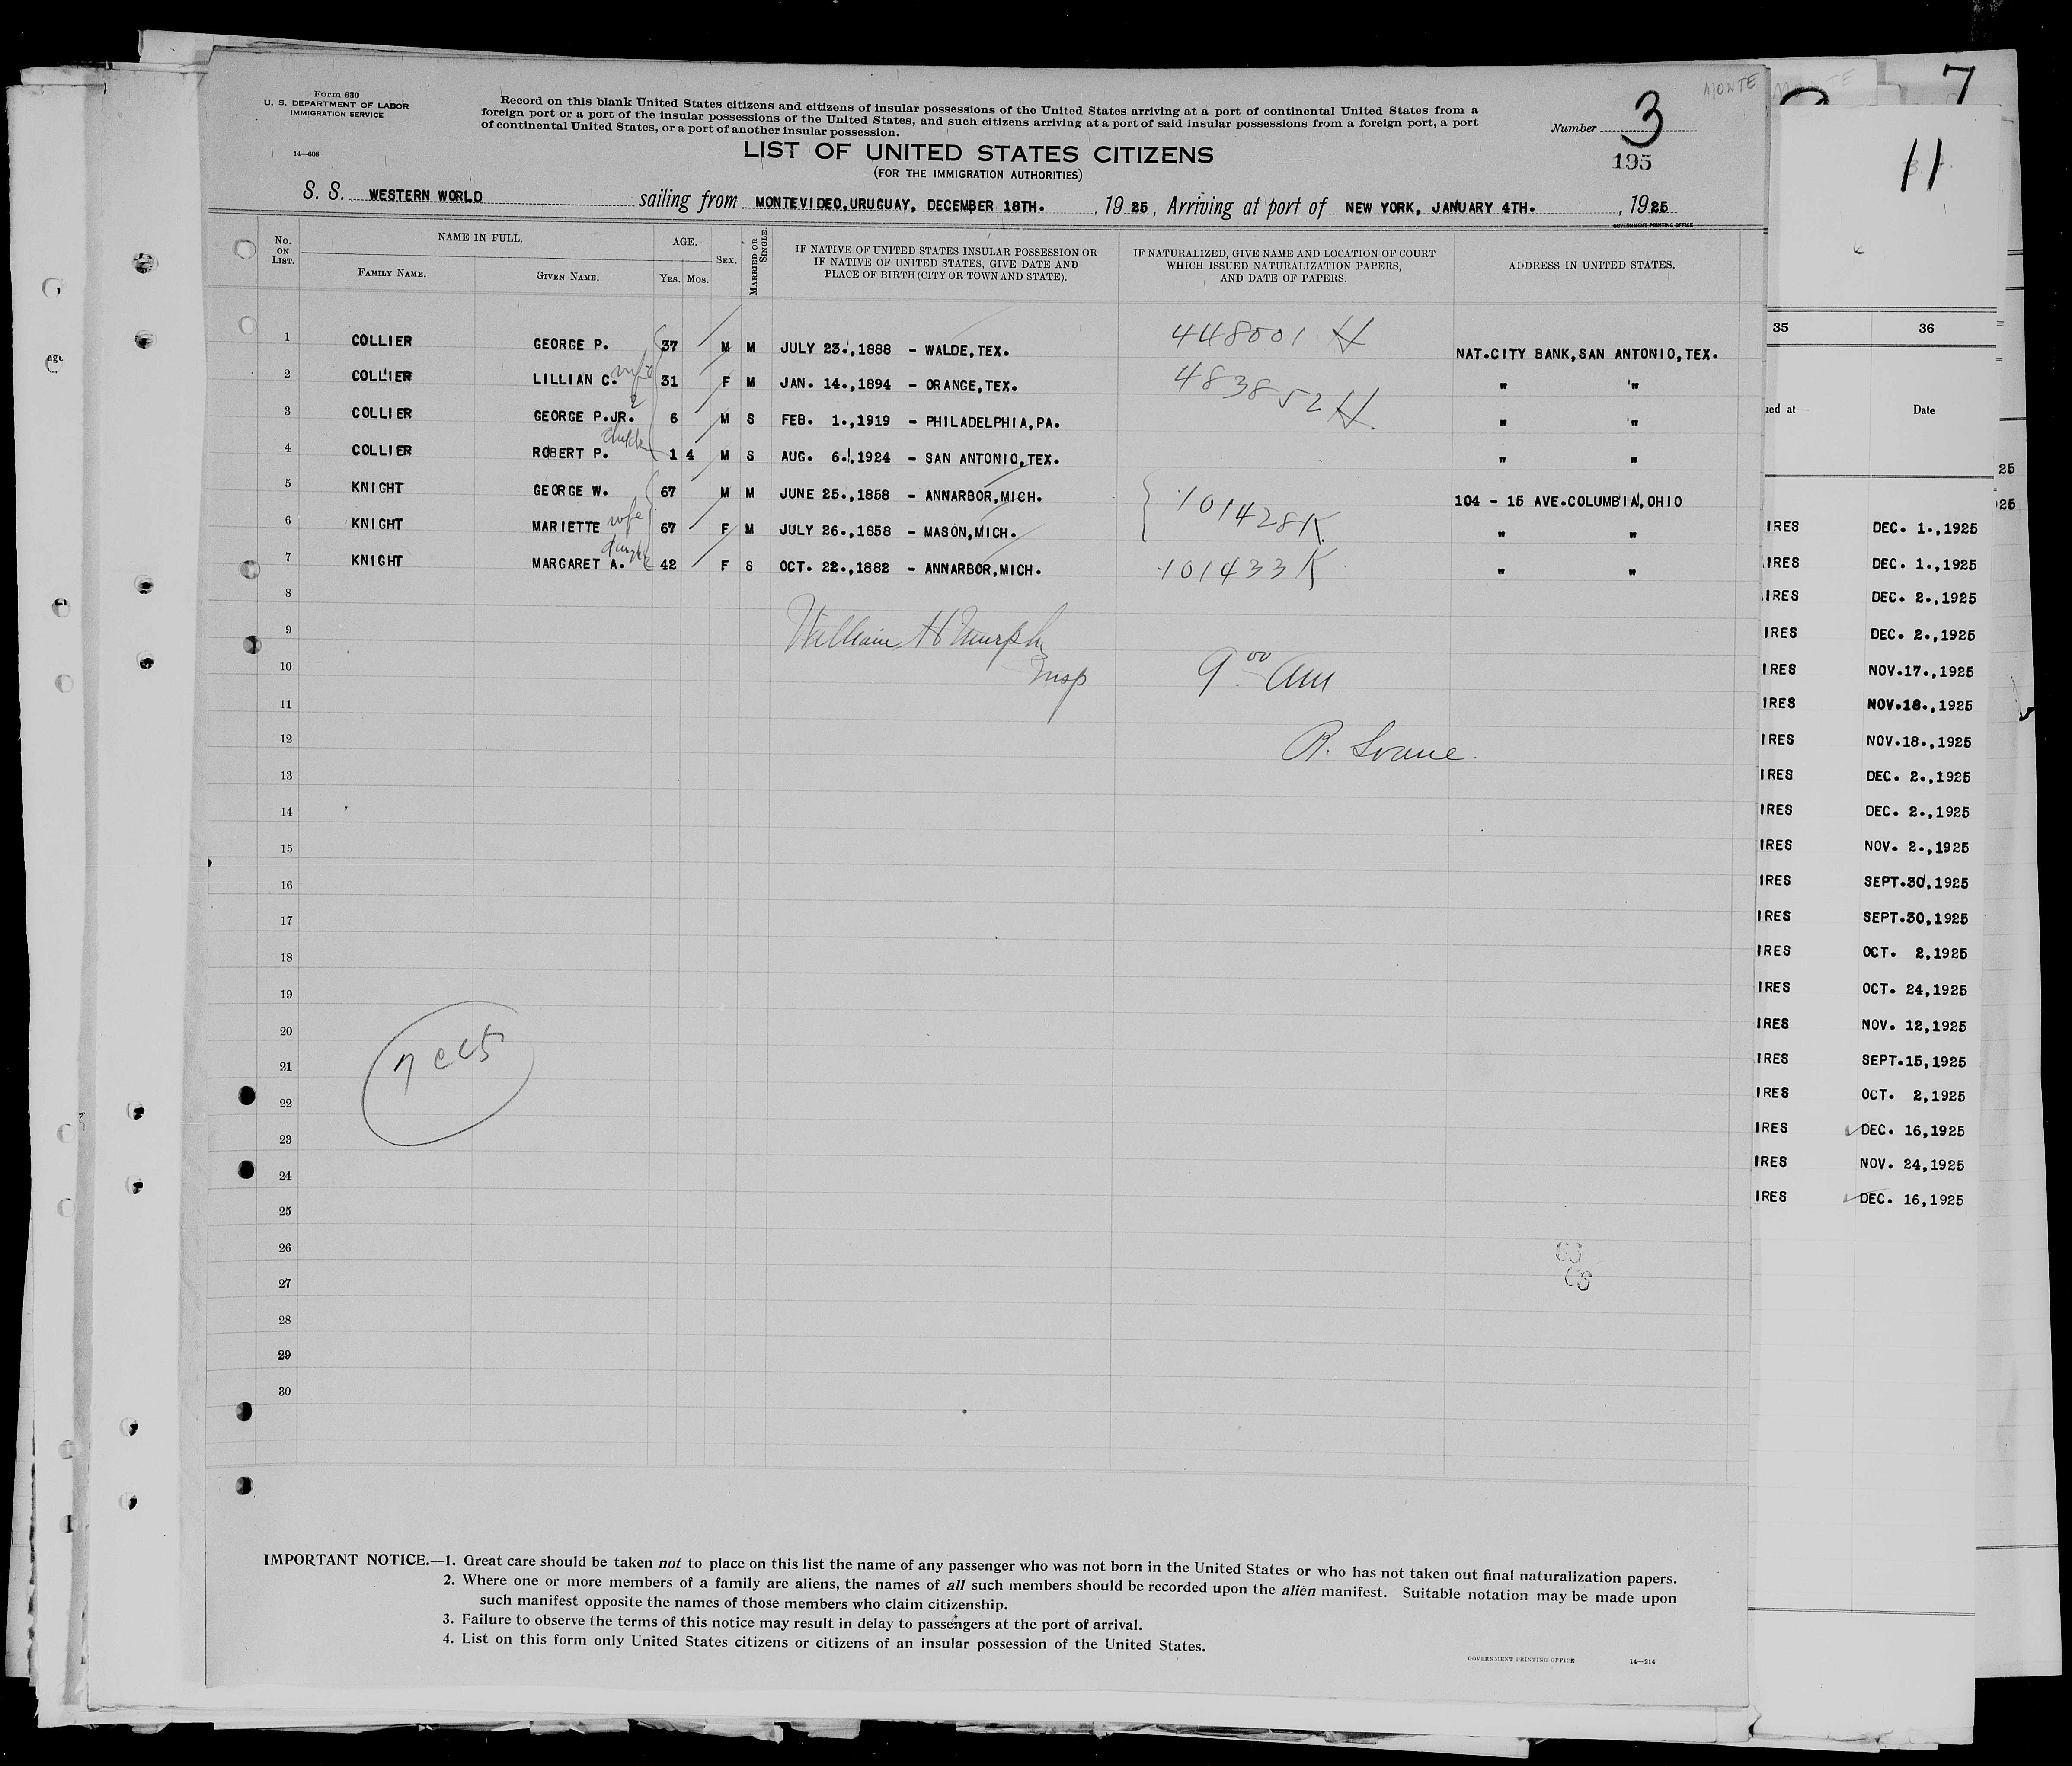 MONTE
7
Form 630
U. S. DEPARTMENT OF LABOR
IMMIGRATION SERVICE
14—608
Record on this blank United States citizens and citizens of insular possessions of the United States arriving at a port of continental United States from a
foreign port or a port of the insular possessions of the United States, and such citizens arriving at a port of said insular possessions from a foreign port, a port
of continental United States, or a port of another insular possession.
Number 3
195
11
LIST OF UNITED STATES CITIZENS
(FOR THE IMMIGRATION AUTHORITIES)
S. S. WESTERN WORLD sailing from MONTEVIDEO, URUGUAY, DECEMBER 18TH. , 19 25, Arriving at port of NEW YORK, JANUARY 4TH. , 1925
GOVERNMENT PRINTING OFFICE
No. ON LIST. NAME IN FULL. FAMILY NAME. GIVEN NAME. AGE. YRS. MOS. SEX. MARRIED OR SINGLE. IF NATIVE OF UNITED STATES INSULAR POSSESSION OR IF NATIVE OF UNITED STATES, GIVE DATE AND PLACE OF BIRTH (CITY OR TOWN AND STATE). IF NATURALIZED, GIVE NAME AND LOCATION OF COURT WHICH ISSUED NATURALIZATION PAPERS, AND DATE OF PAPERS. ADDRESS IN UNITED STATES.
1 COLLIER GEORGE P. 37 M M JULY 23.,1888 - WALDE,TEX. 448001 H NAT.CITY BANK,SAN ANTONIO,TEX.
2 COLLIER LILLIAN C. wife 31 F M JAN. 14.,1894 - ORANGE,TEX. 483852 H " "
3 COLLIER GEORGE P.JR. 2 6 M S FEB. 1.,1919 - PHILADELPHIA,PA. " "
4 COLLIER ROBERT P. 1 4 M S AUG. 6.,1924 - SAN ANTONIO,TEX. " "
5 KNIGHT GEORGE W. 67 M M JUNE 25.,1858 - ANNARBOR,MICH. 101428K 104 - 15 AVE.COLUMBIA,OHIO
6 KNIGHT MARIETTE wife 67 F M JULY 26.,1858 - MASON,MICH. " "
7 KNIGHT MARGARET A. 42 F S OCT. 22.,1882 - ANNARBOR,MICH. 101433 K " "
8
9 William H Murphy
10 Insp 9 00 am
11
12 R. Sloane.
13
14
15
16
17
18
19
20
21
22
23
24
25
26
27
28
29
30
35 36
ued at— Date
25
25
IRES DEC. 1.,1925
IRES DEC. 1.,1925
IRES DEC. 2.,1925
IRES DEC. 2.,1925
IRES NOV.17.,1925
IRES NOV.18.,1925
IRES NOV.18.,1925
IRES DEC. 2.,1925
IRES DEC. 2.,1925
IRES NOV. 2.,1925
IRES SEPT.30,1925
IRES SEPT.30,1925
IRES OCT. 2,1925
IRES OCT. 24,1925
IRES NOV. 12,1925
IRES SEPT.15,1925
IRES OCT. 2,1925
IRES DEC. 16,1925
IRES NOV. 24,1925
IRES DEC. 16,1925
IMPORTANT NOTICE.—1. Great care should be taken not to place on this list the name of any passenger who was not born in the United States or who has not taken out final naturalization papers.
2. Where one or more members of a family are aliens, the names of all such members should be recorded upon the alien manifest. Suitable notation may be made upon
such manifest opposite the names of those members who claim citizenship.
3. Failure to observe the terms of this notice may result in delay to passengers at the port of arrival.
4. List on this form only United States citizens or citizens of an insular possession of the United States.
GOVERNMENT PRINTING OFFICE 14—214